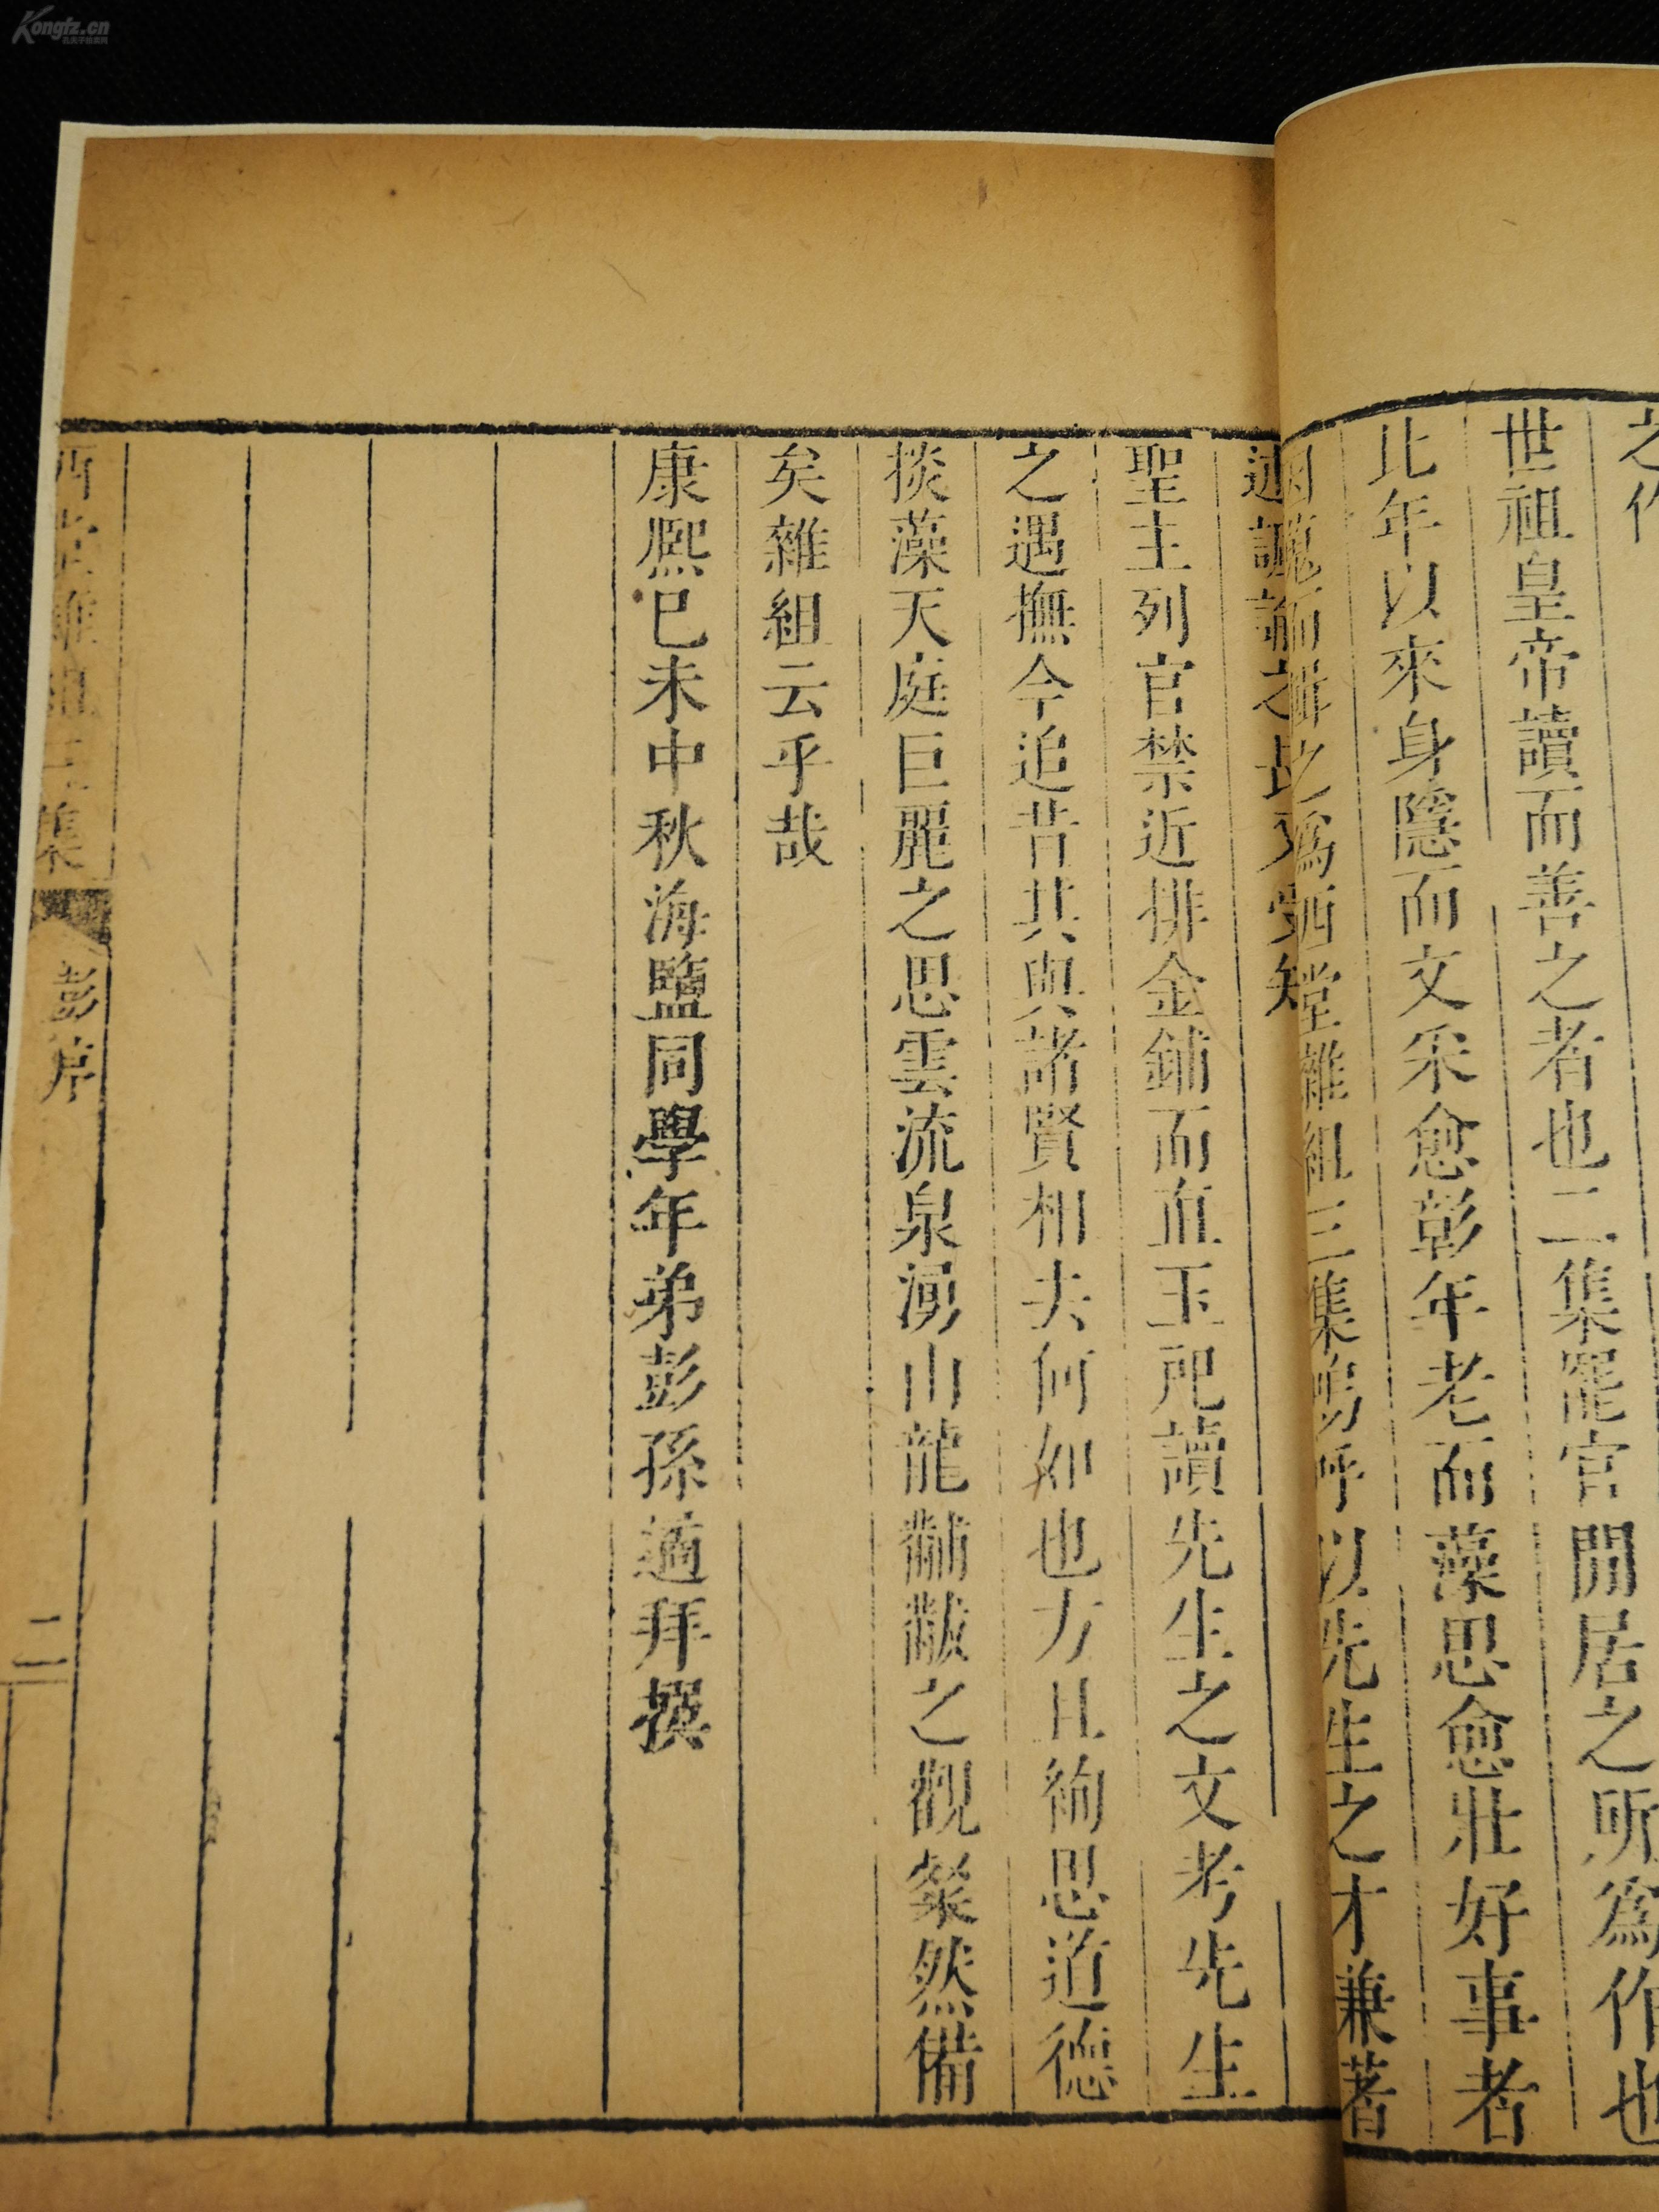 之作
世祖皇帝讀而善之者也二集罷官閒居之所爲作也
比年以來身隱而文采愈彰年老而藻思愈壯好事者
爲西堂雜組三集嗚呼以先生之才兼著
之受知
聖主列官禁近排金鋪而直玉戺讀先生之文考先生
之遇撫今追昔其與諸賢相去何如也方且絢思道德
掞藻天庭巨麗之思雲流泉湧山龍黼黻之觀粲然備
矣雜組云乎哉
康熙巳未中秋海鹽同學年弟彭孫遹拜撰
西堂雜組三集
彭序
二
Kongfz.cn